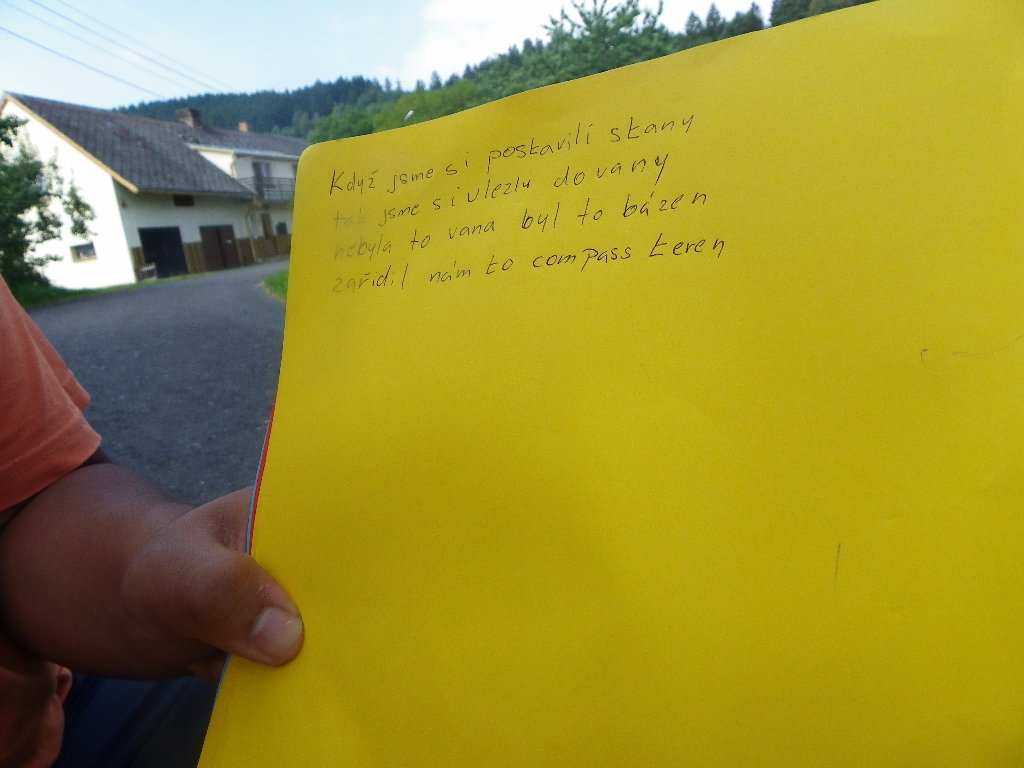 Když jsme si postavilí stany
tak jsme si vlezlú do vany
nebyla to vana byl to bázen
zařídil nám to compass teren